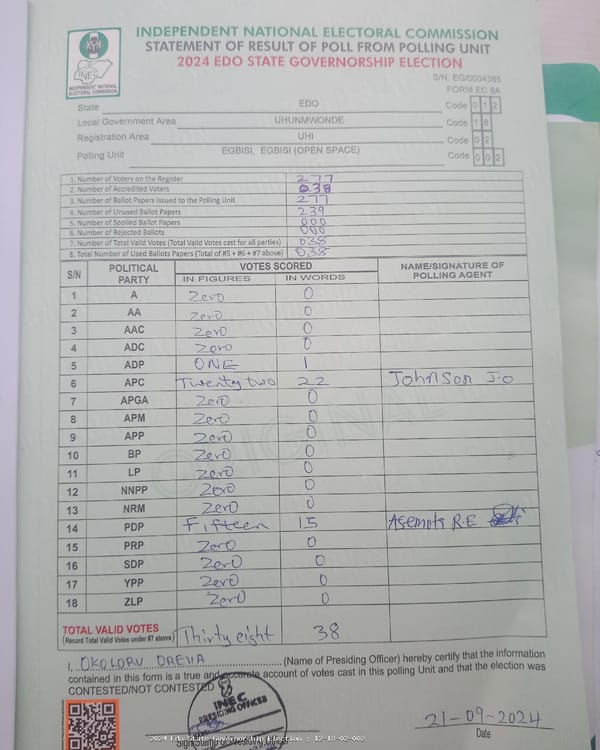 INDEPENDENT NATIONAL ELECTORAL COMMISSION
STATEMENT OF RESULT OF POLL FROM POLLING UNIT
2024 EDO STATE GOVERNORSHIP ELECTION
INEC
INDEPENDENT NATIONAL ELECTORAL COMMISSION
S/N: EG/0004365
FORM EC 8A
State EDO Code 0 1 2
Local Government Area UHUNMWONDE Code 1 8
Registration Area UHI Code 0 2
Polling Unit EGBISI, EGBISI (OPEN SPACE) Code 0 0 2
1. Number of Voters on the Register 277
2. Number of Accredited Voters 038
3. Number of Ballot Papers Issued to the Polling Unit 277
4. Number of Unused Ballot Papers 239
5. Number of Spoiled Ballot Papers 000
6. Number of Rejected Ballots 000
7. Number of Total Valid Votes (Total Valid Votes cast for all parties) 038
8. Total Number of Used Ballots Papers (Total of #5 + #6 + #7 above) 038
S/N POLITICAL PARTY VOTES SCORED NAME/SIGNATURE OF POLLING AGENT
IN FIGURES IN WORDS
1 A Zero 0
2 AA Zero 0
3 AAC Zero 0
4 ADC Zero 0
5 ADP ONE 1
6 APC Twenty two 22 Johnson J.O
7 APGA Zero 0
8 APM Zero 0
9 APP Zero 0
10 BP Zero 0
11 LP Zero 0
12 NNPP Zero 0
13 NRM Zero 0
14 PDP Fifteen 15 R.E
15 PRP Zero 0
16 SDP Zero 0
17 YPP Zero 0
18 ZLP Zero 0
ORIGINAL
TOTAL VALID VOTES
(Record Total Valid Votes under #7 above) Thirty eight 38
I, OKOLORU (Name of Presiding Officer) hereby certify that the information
contained in this form is a true and accurate account of votes cast in this polling Unit and that the election was
CONTESTED/NOT CONTESTED
INEC
PRESIDING OFFICER
21-09-2024
Date
2024 Edo State Governorship Election : 12-18-02-002